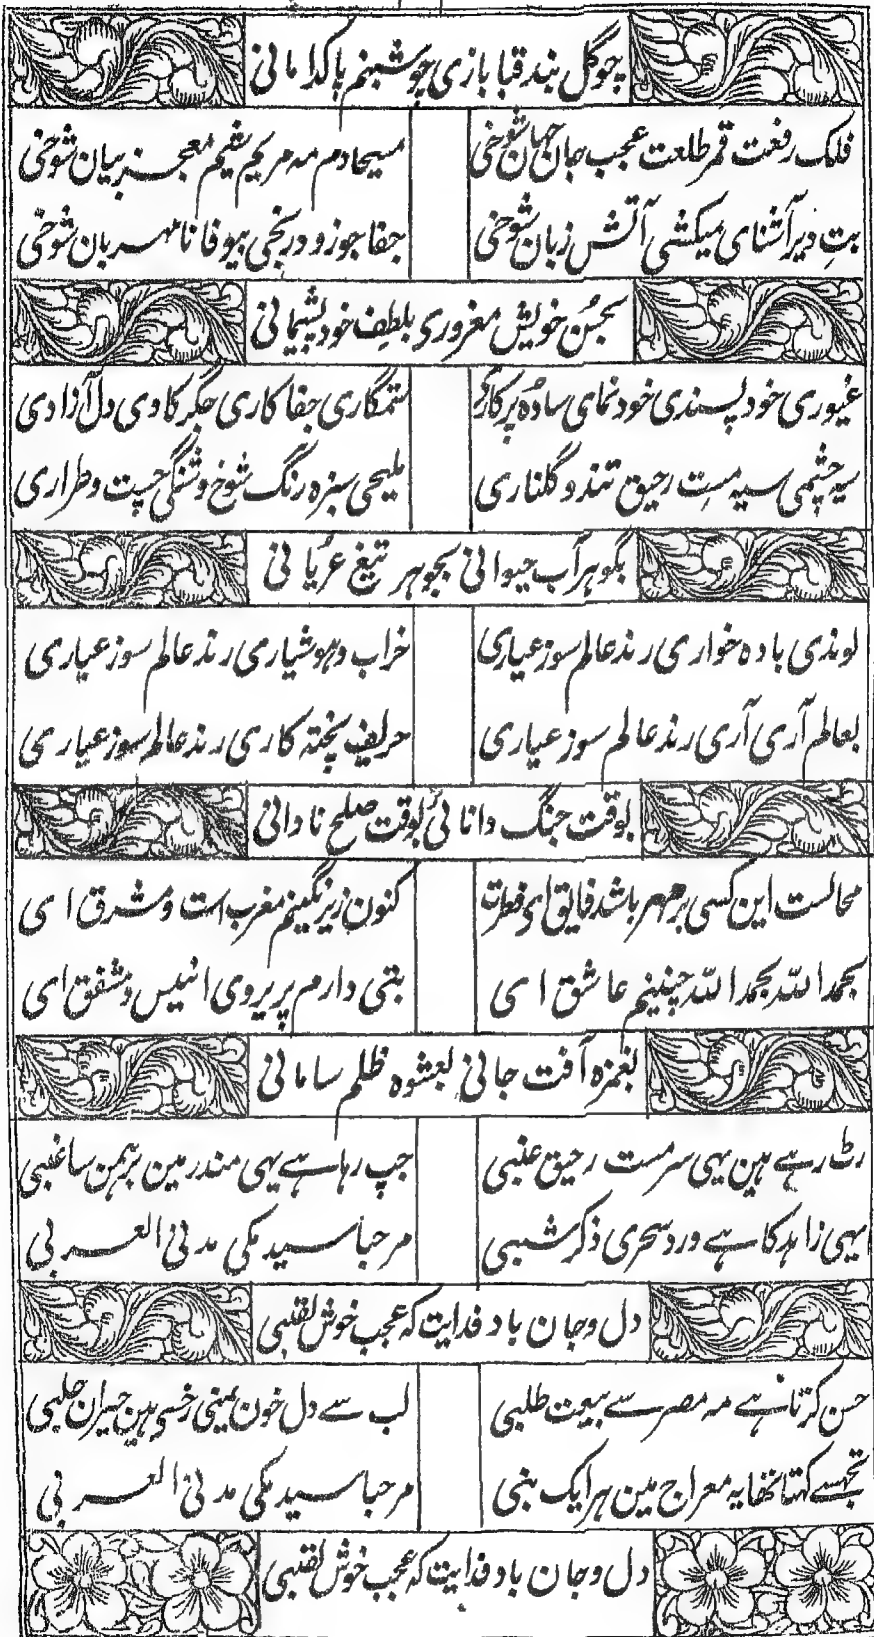 چو گل بند قبا بازی چو شبنم پاکدامانی
فلک رفعت قمر طلعت عجب جان جہان شوخی
مسیحا دم مہ مریم یقیم معجز بیان شوخی
بت دیر آشنای میکشی آتش زبان شوخی
جفا جو زود رنجی بیوفا نامہربان شوخی
بحسن خویش مغروری بلطف خود پشیمانی
غیوری خود پسندی خود نمای سادہ پرکاری
ستمگاری جفا کاری جگر کاوی دل آزادی
سیہ چشمی سیہ مست رحیق تند و گلناری
ملیحی سبزہ رنگ شوخ و شنگی چست و طراری
بگوہر آب حیوانی بجوہر تیغ عریانی
لوندی بادہ خواری رند عالم سوز عیاری
خراب و ہوشیاری رند عالم سوز عیاری
بعالم آری آری رند عالم سوز عیاری
حریف پختہ کاری رند عالم سوز عیاری
بوقت جنگ دانائی بوقت صلح نادانی
محالست این کسی بر مہر باشد فایق ای فطرت
کنون زیر نگینم مغرب است و مشرق ای
بحمد اللہ بحمد اللہ چنینم عاشق ای
بتی دارم پریروی انیس و مشفق ای
بغمزہ آفت جانی بعشوہ ظلم سامانی
رٹ رہے ہین یہی سرمست رحیق عنبی
جپ رہا ہے یہی مندر مین برہمن ساغبی
یہی زاہد کا ہے ورد سحری ذکر شبی
مرحبا سید مکی مدنی العربی
دل و جان باد فدایت کہ عجب خوش لقبی
حسن کرتا ہے مہ مصر سے بیعت طلبی
لب سے دل خون یمنی رخسے ہین حیران حلبی
تجھسے کہتا تھا یہ معراج مین ہر ایک نبی
مرحبا سید مکی مدنی العربی
دل و جان باد فدایت کہ عجب خوش لقبی